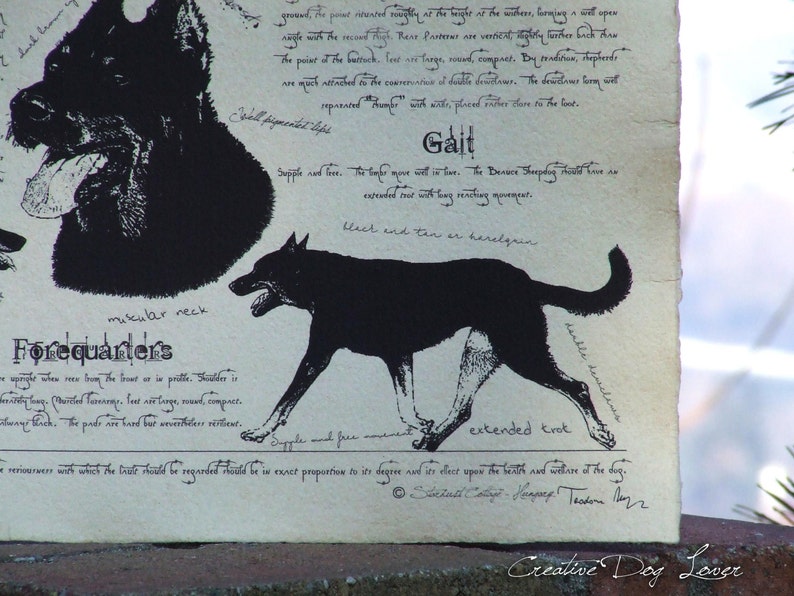 ground, the point situated roughly at the height at the withers, forming a well open
angle with the second thigh. Rear Pasterns are vertical, slightly further back than
the point of the buttock. Feet are large, round, compact. By tradition, shepherds
are much attached to the conservation of double dewclaws. The dewclaws form well
separated "thumbs" with nails, placed rather close to the foot.
dark brown
Well pigmented lips
Gait
Supple and free. The limbs move well in line. The Beauce Sheepdog should have an
extended trot with long reaching movement.
black and tan or harlequin
muscular neck
double dewclaws
Forequarters
upright when seen from the front or in profile. Shoulder is
long. Muscled forearms. Feet are large, round, compact.
always black. The pads are hard but nevertheless resilient.
Supple and free movement
extended trot
seriousness with which the fault should be regarded should be in exact proportion to its degree and its effect upon the health and welfare of the dog.
© Stardust Cottage - Hungary
Creative Dog Lover